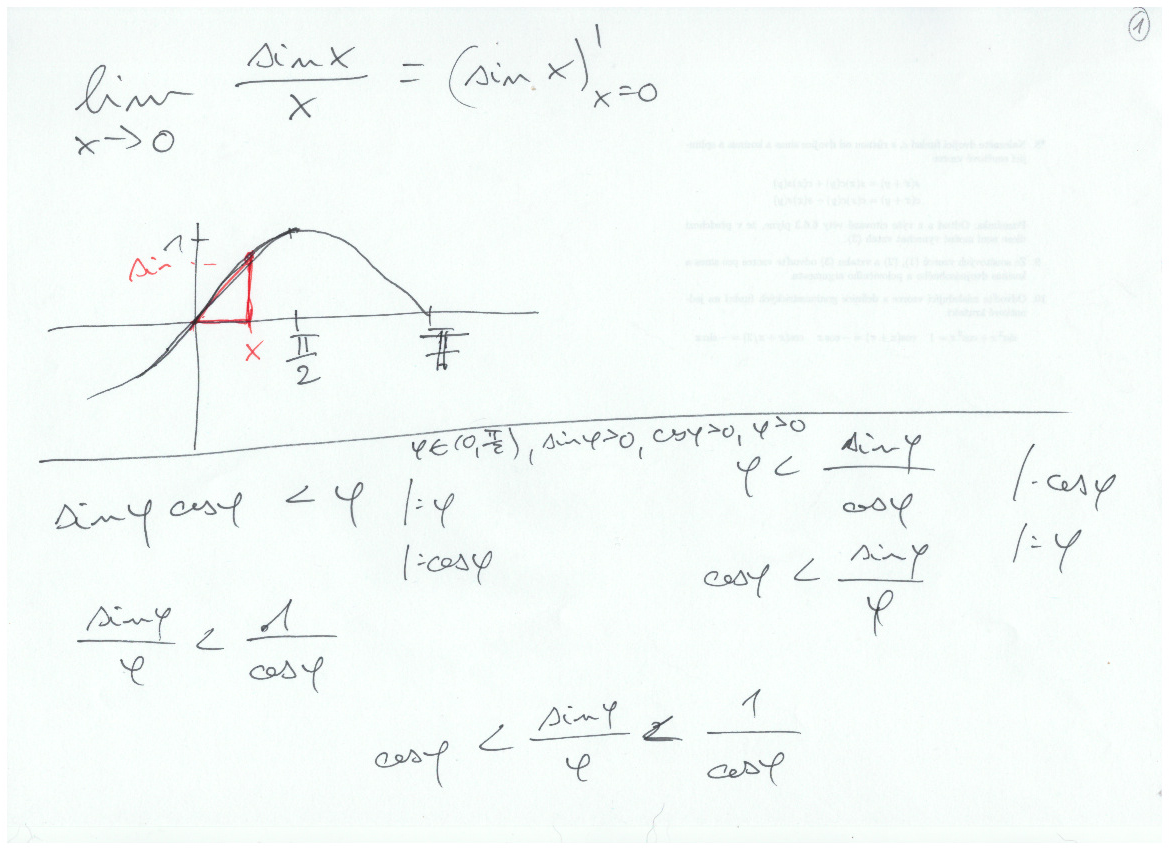 1
lim x→0 sin x / x = (sin x)' x=0
1
sin
x
π/2
π
φ∈(0, π/2), sin φ>0, cos φ>0, φ>0
sin φ cos φ < φ |:φ
|:cos φ
φ < sin φ / cos φ |·cos φ
cos φ < sin φ / φ |:φ
sin φ / φ < 1 / cos φ
cos φ < sin φ / φ < 1 / cos φ